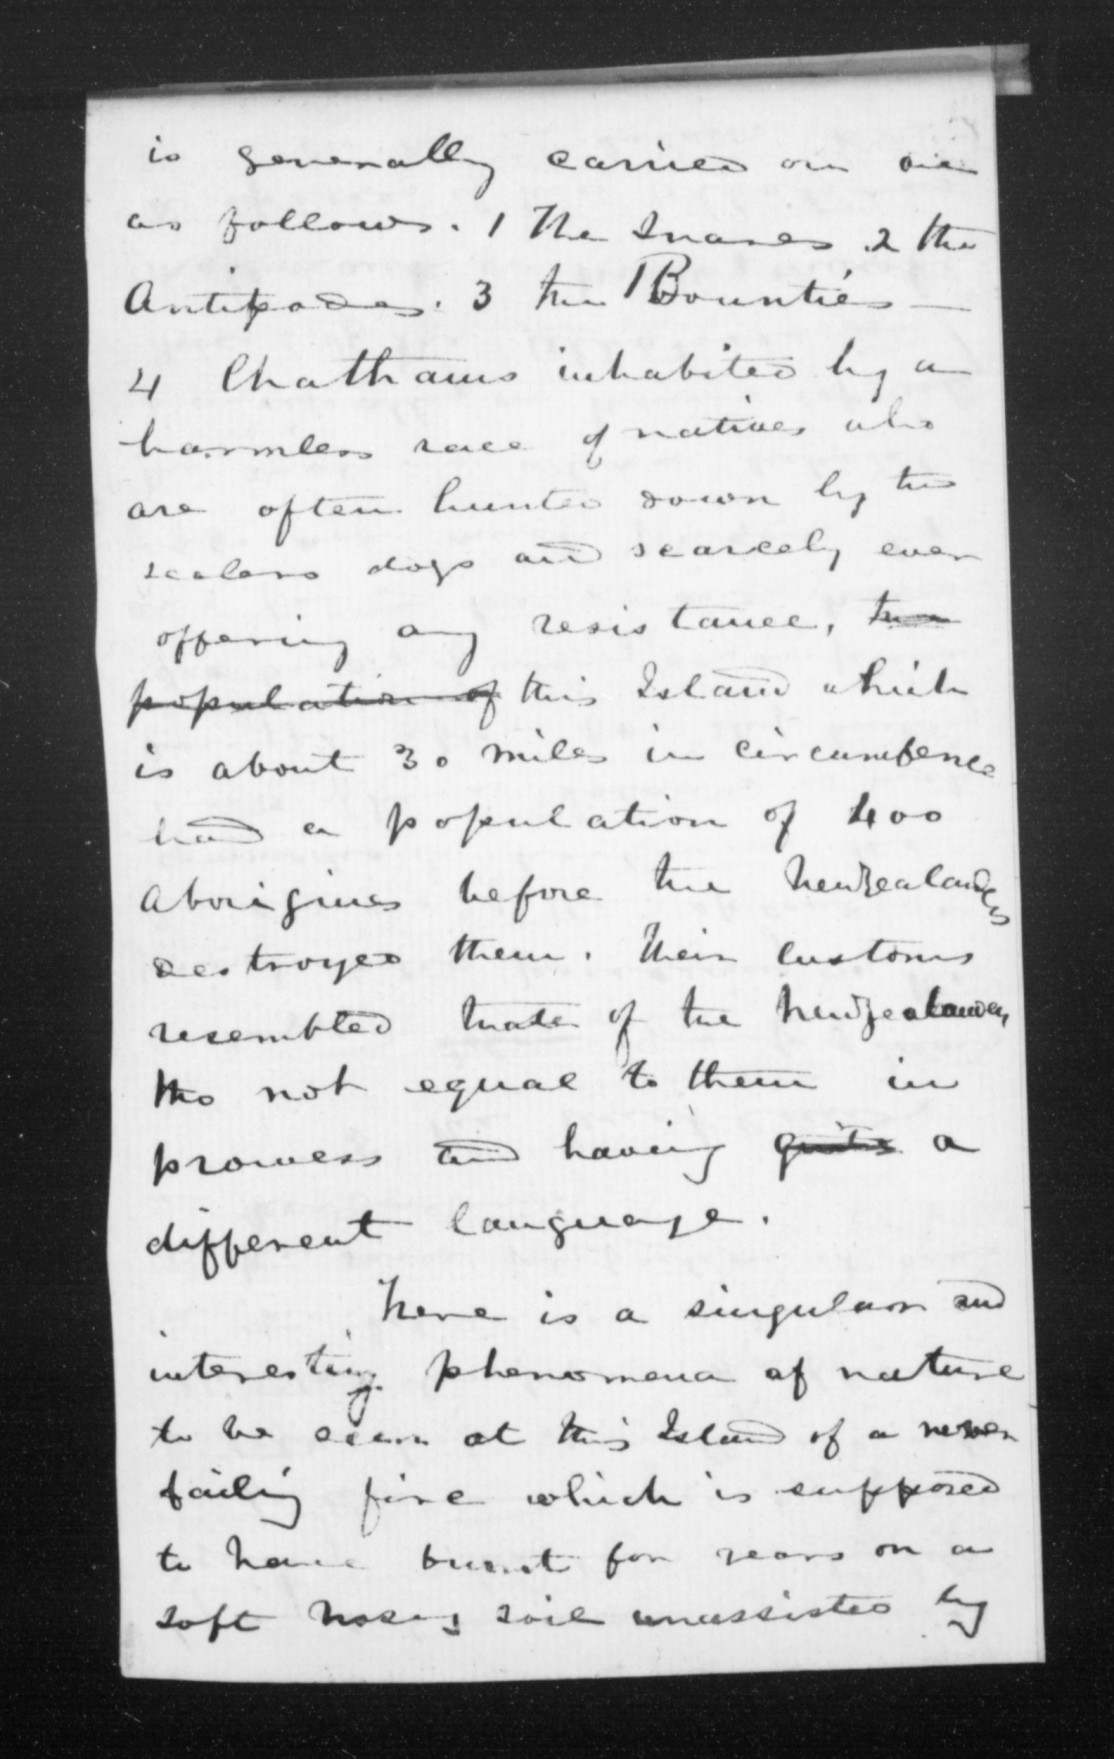 is generally carried on are
as follows. 1 The Snares 2 the
Antipodes. 3 the Bounties —
4 Chathams inhabited by a
harmless race of natives who
are often hunted down by the
sealers dogs and scarcely ever
offering any resistance, the
population of this Island which
is about 30 miles in circumfence
had a population of 400
aborigines before the Newzealanders
destroyed them. Their customs
resembled that of the Newzealanders
tho not equal to them in
prowess and having quite a
different language.
There is a singular and
interesting phenomena of nature
to be seen at this Island of a never
failing fire which is supposed
to have burnt for years on a
soft soil unassisted by